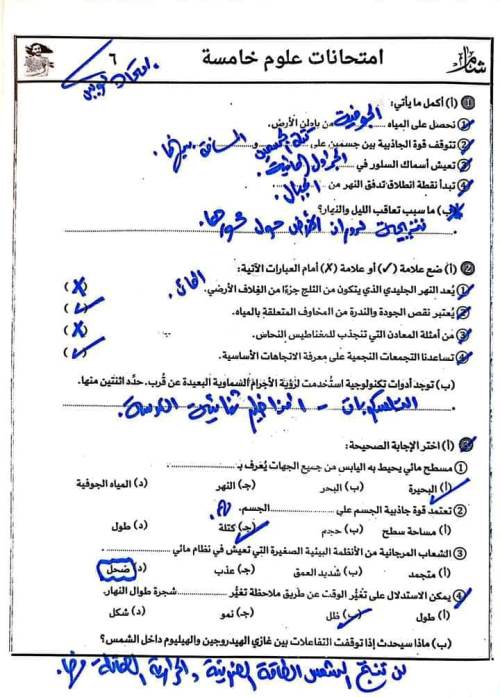 امتحانات علوم خامسة
٦
١ (أ) أكمل ما يأتي:
١ نحصل على المياه الجوفية من باطن الأرض.
٢ تتوقف قوة الجاذبية بين جسمين على كتلة الجسمين و المسافة بينهما.
٣ تعيش أسماك السلور في الجداول المائية.
٤ تبدأ نقطة انطلاق تدفق النهر من الجبال.
(ب) ما سبب تعاقب الليل والنهار؟
نتيجة لدوران الأرض حول محورها.
٢ (أ) ضع علامة (✓) أو علامة (✗) أمام العبارات الآتية:
١ يُعد النهر الجليدي الذي يتكون من الثلج جزءًا من الغلاف الأرضي. المائى (✗)
٢ يُعتبر نقص الجودة والندرة من المخاوف المتعلقة بالمياه. (✓)
٣ من أمثلة المعادن التي تنجذب للمغناطيس النحاس. (✗)
٤ تساعدنا التجمعات النجمية على معرفة الاتجاهات الأساسية. (✓)
(ب) توجد أدوات تكنولوجية استُخدمت لرؤية الأجرام السماوية البعيدة عن قُرب. حدِّد اثنتين منها.
التلسكوبات - المناظير ثنائية العدسة.
٣ (أ) اختر الإجابة الصحيحة:
١ مسطح مائي يحيط به اليابس من جميع الجهات يُعرف بـ ..........
(أ) البحيرة (ب) البحر (جـ) النهر (د) المياه الجوفية
٢ تعتمد قوة جاذبية الجسم على .......... الجسم.
(أ) مساحة سطح (ب) حجم (جـ) كتلة (د) طول
٣ الشعاب المرجانية من الأنظمة البيئية الصغيرة التي تعيش في نظام مائي ..........
(أ) متجمد (ب) شديد العمق (جـ) عذب (د) ضحل
٤ يمكن الاستدلال على تغيُّر الوقت عن طريق ملاحظة تغيُّر .......... شجرة طوال النهار.
(أ) طول (ب) ظل (جـ) نمو (د) شكل
(ب) ماذا سيحدث إذا توقفت التفاعلات بين غازي الهيدروجين والهيليوم داخل الشمس؟
لن تنتج الشمس الطاقة الضوئية والحرارية الهائلة